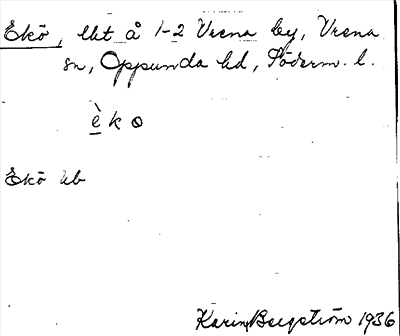 Ekö, lht å 1-2 Vrena by, Vrena
sn, Oppunda hd, Söderm. l.
èko
Ekö ub
Karin Bergström 1936